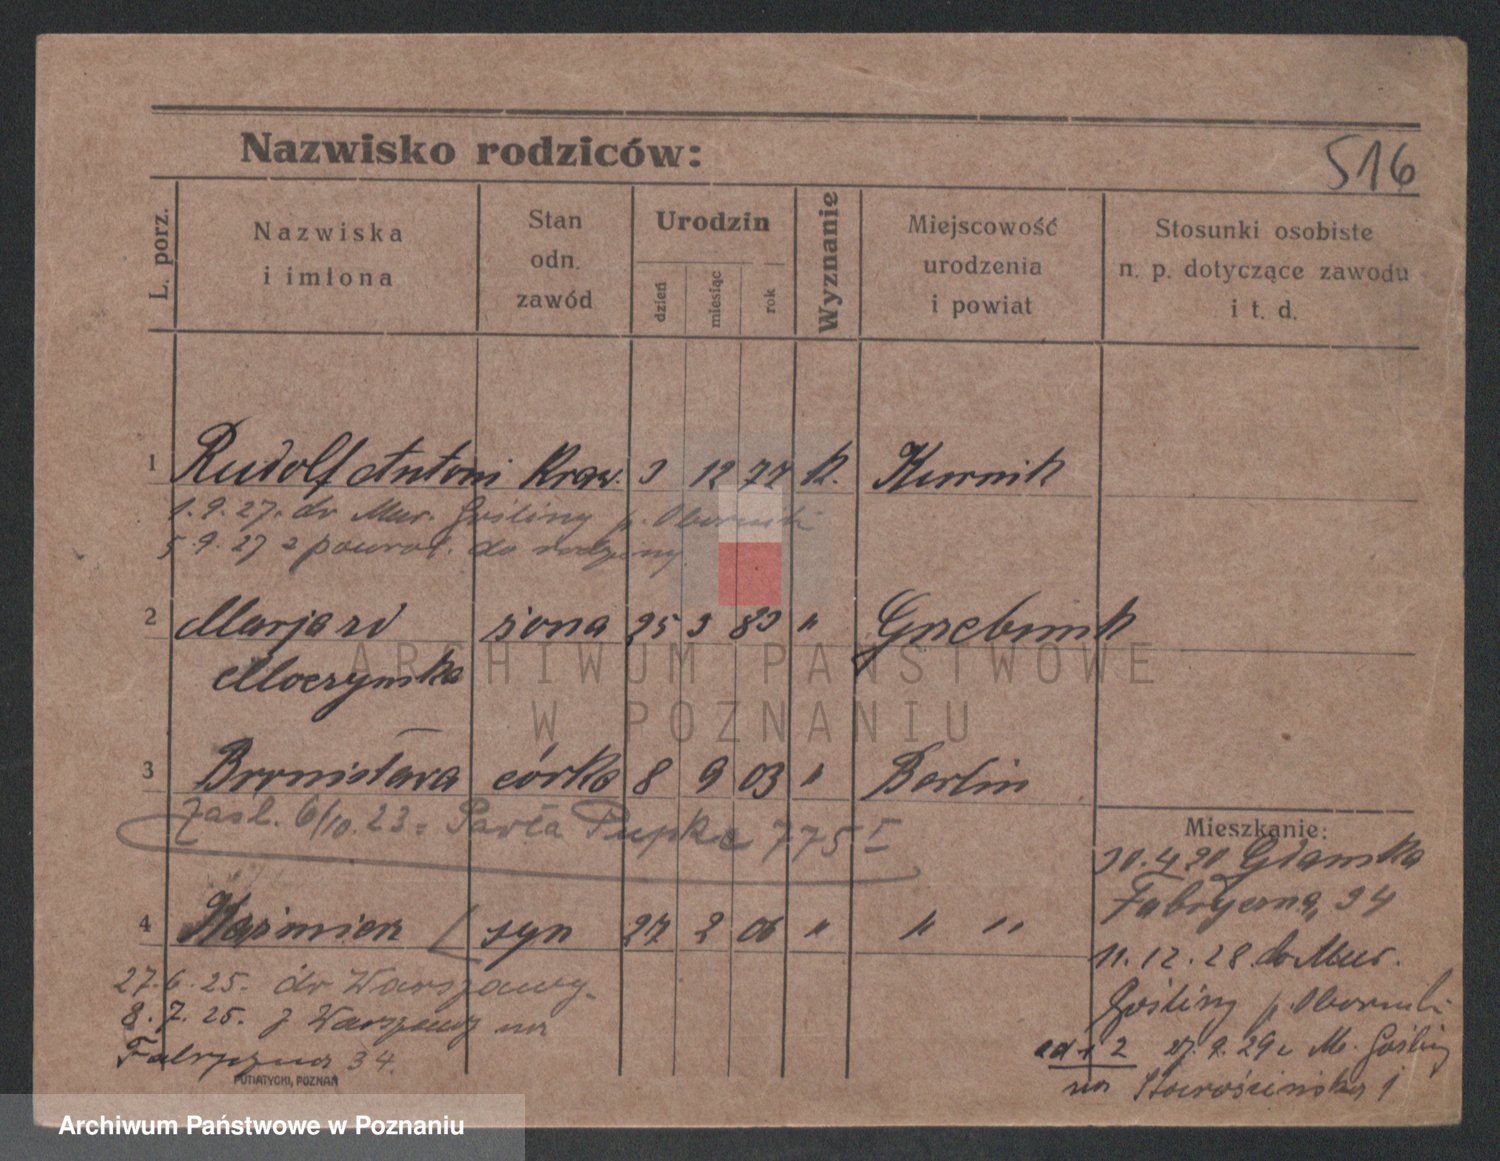 Nazwisko rodziców:
516
L. porz.
Nazwiska
i imiona
Stan
odn.
zawód
Urodzin
dzień
miesiąc
rok
Wyznanie
Miejscowość
urodzenia
i powiat
Stosunki osobiste
n. p. dotyczące zawodu
i t. d.
1 Rudolf Antoni Kraw. 3 12 77 k. Kurnik
1.9.27. do Mur. Gośliny p. Oborniki
5.9.27 z powrot. do rodziny
2 Marja zd żona 25 3 83 "
Moczyńska
3 Bronisława córka 8 9 03 " Berlin
Zaśl. 6/10.23 = Pawła Pupke 775 I
Mieszkanie:
30.4.20
Fabryczna 34
4 Kazimierz syn 27 2 06 " " "
11.12.28. do Mur.
Gośliny p. Oborniki
27.6.25. do Warszawy.
8.7.25. z Warszawy na
Fabryczna 34.
ad 1 2 27.9.29 z M. Gośliny
na Starościńska 1
PUTIATYCKI, POZNAŃ
ARCHIWUM PAŃSTWOWE
W POZNANIU
Archiwum Państwowe w Poznaniu